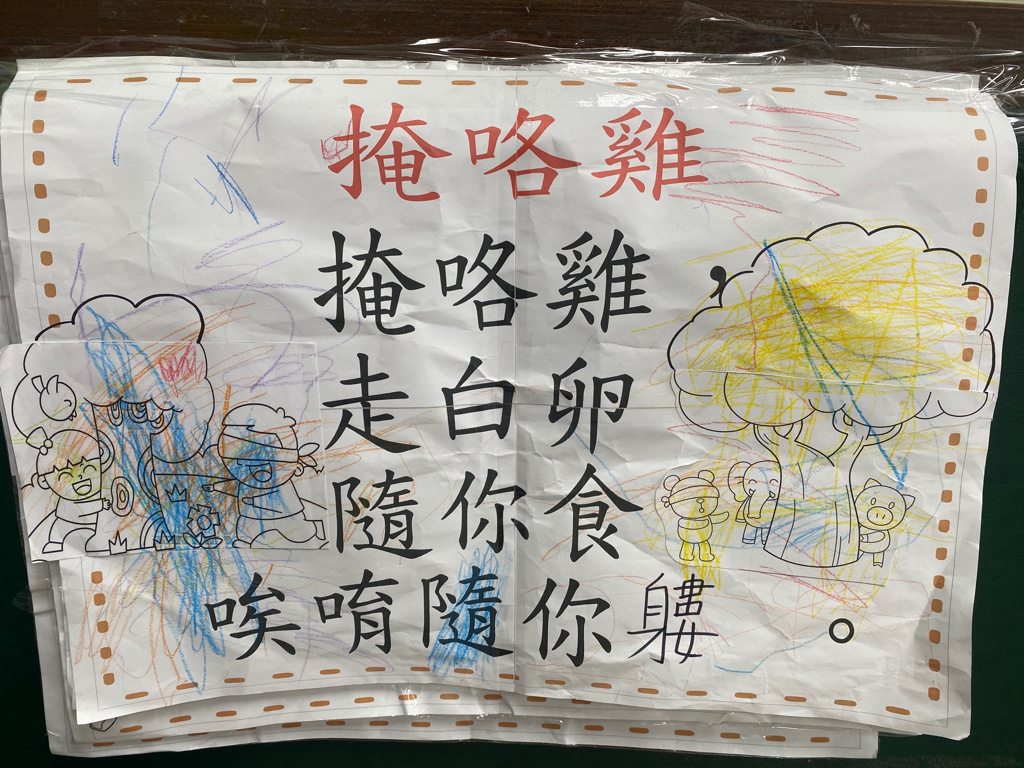 掩咯雞
掩咯雞，
走白卵
隨你食
唉唷隨你軁。